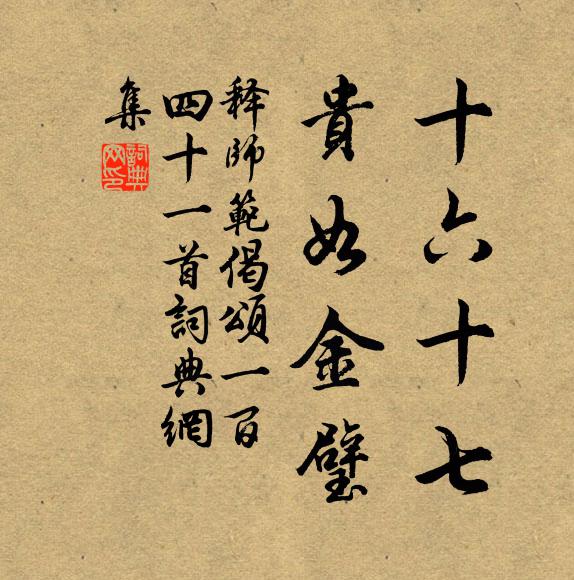 十六十七
貴如金璧
释師範偈頌一百
四十一首詞典網
集
詞典
网印